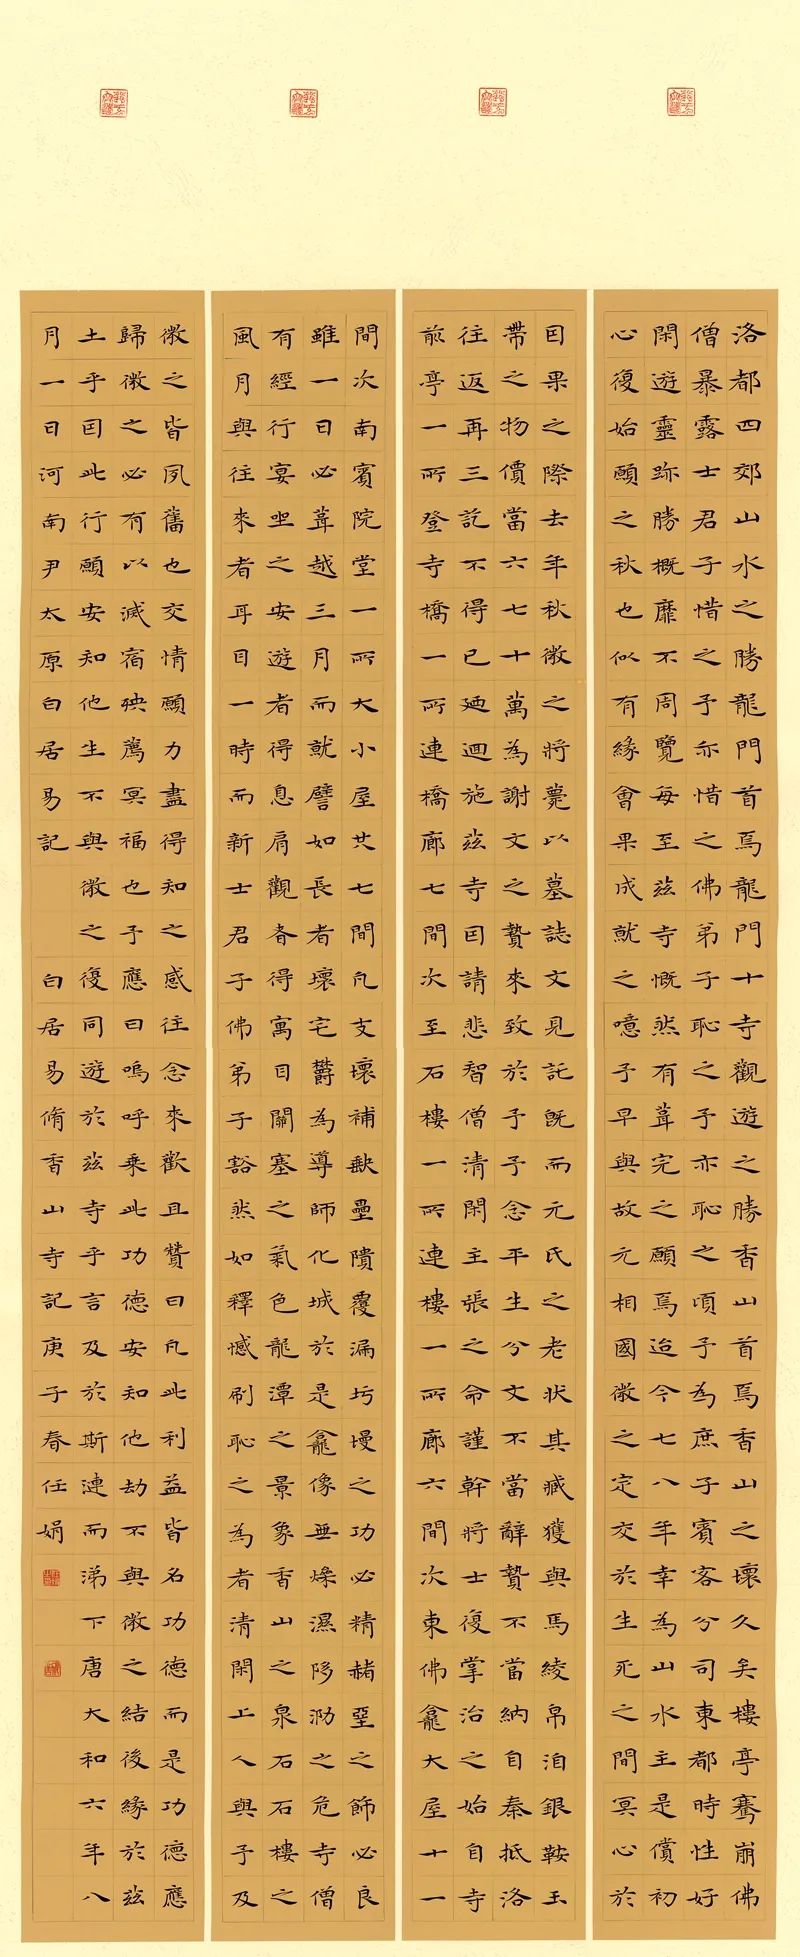 洛都四郊山水之勝龍門首焉龍門十寺觀遊之勝香山首焉香山之壞久矣樓亭騫崩佛
僧暴露士君子惜之予亦惜之佛弟子恥之予亦恥之頃予為庶子賓客分司東都時性好
閑遊靈跡勝概靡不周覽每至茲寺慨然有葺完之願焉迨今七八年幸為山水主是償初
心復始願之秋也似有緣會果成就之噫予早與故元相國微之定交於生死之間冥心於
因果之際去年秋微之將薨以墓誌文見託既而元氏之老狀其臧獲與馬綾帛洎銀鞍玉
帶之物價當六七十萬為謝文之贄來致於予予念平生分文不當辭贄不當納自秦抵洛
往返再三訖不得已廼迴施茲寺因請悲智僧清閑主張之命謹幹將士復掌治之始自寺
前亭一所登寺橋一所連橋廊七間次至石樓一所連樓一所廊六間次東佛龕大屋十一
間次南賓院堂一所大小屋共七間凡支壞補缺壘隤覆漏圬墁之功必精赭堊之飾必良
雖一日必葺越三月而就譬如長者壞宅鬱為導師化城於是龕像無燥濕陊泐之危寺僧
有經行宴坐之安遊者得息肩觀者得寓目關塞之氣色龍潭之景象香山之泉石石樓之
風月與往來者耳目一時而新士君子佛弟子豁然如釋憾刷恥之為者清閑上人與予及
微之皆夙舊也交情願力盡得知之感往念來歡且贊曰凡此利益皆名功德而是功德應
歸微之必有以滅宿殃薦冥福也予應曰嗚呼乘此功德安知他劫不與微之結後緣於茲
土乎因此行願安知他生不與微之復同遊於茲寺乎言及於斯漣而涕下唐大和六年八
月一日河南尹太原白居易記 白居易脩香山寺記庚子春任娟